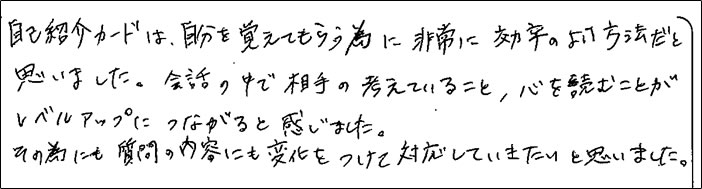 自己紹介カードは、自分を覚えてもらう為に非常に効率のよい方法だと
思いました。会話の中で相手の考えていること、心を読むことが
レベルアップにつながると感じました。
その為にも質問の内容にも変化をつけて対応していきたいと思いました。